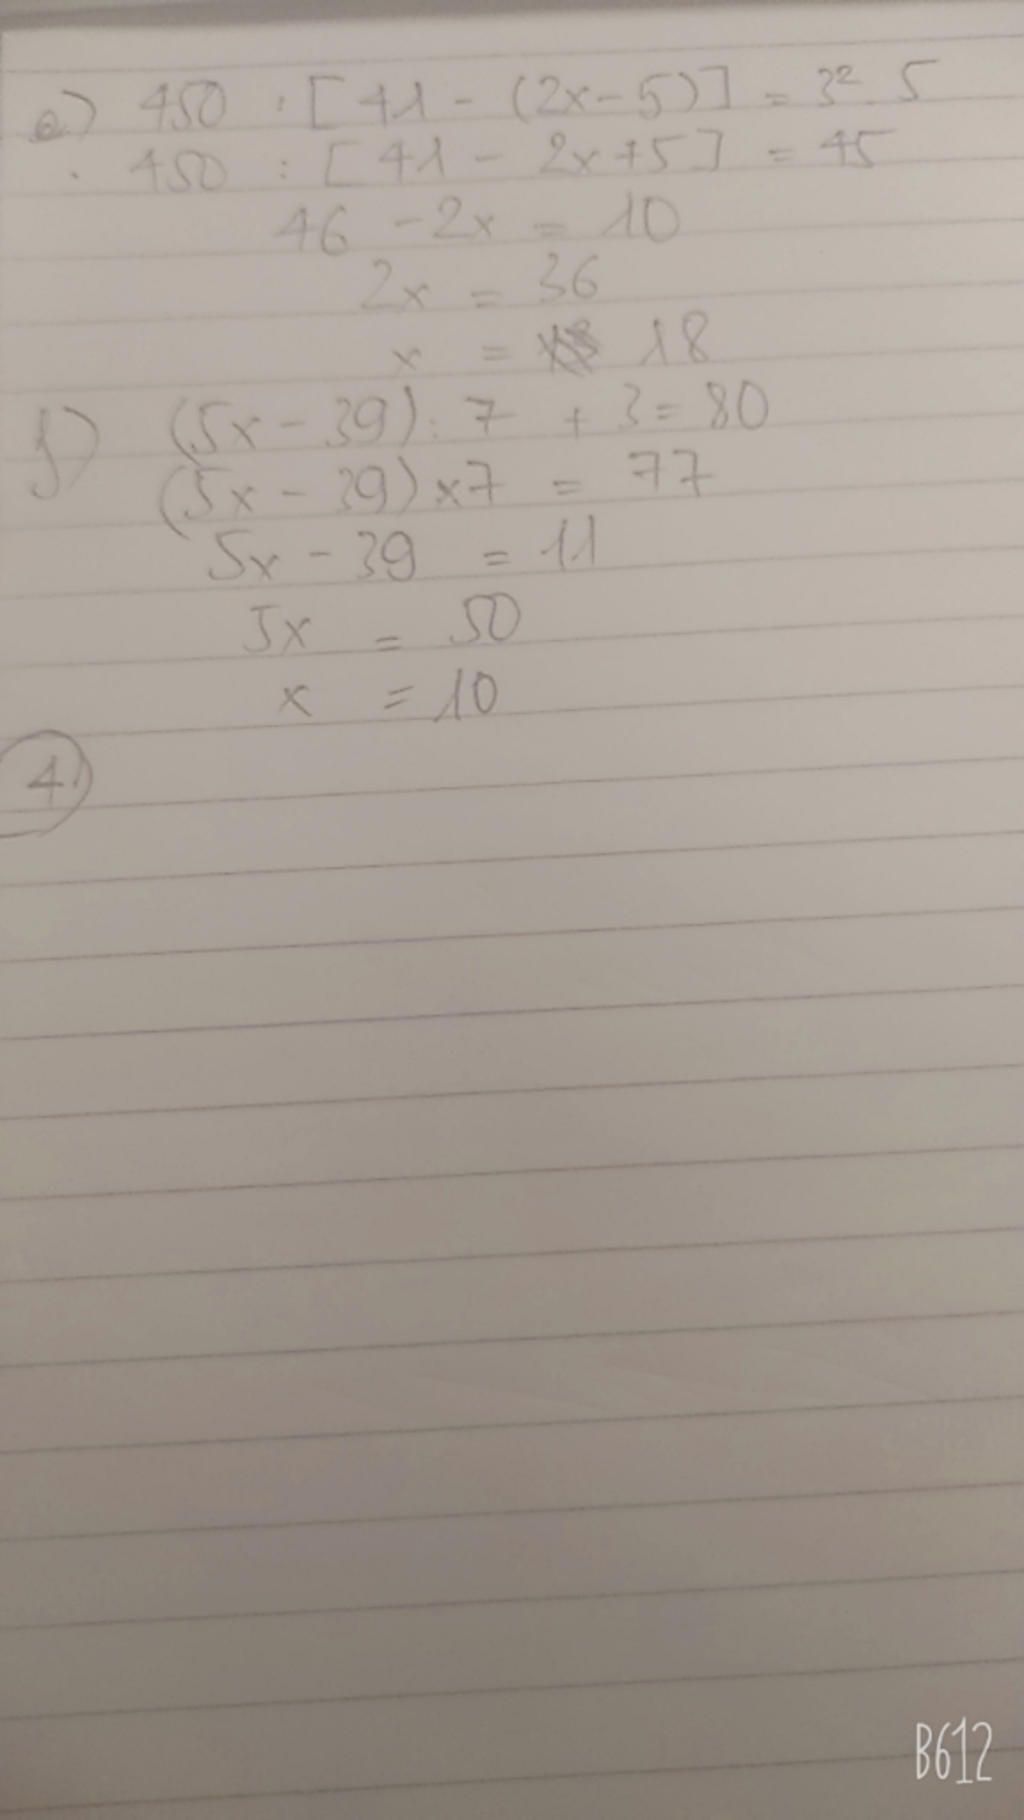 e) 450 : [41 - (2x-5)] = 3². 5
450 : [41 - 2x+5] = 45
46 - 2x = 10
2x = 36
x = 18
f) (5x - 39) : 7 + 3 = 80
(5x - 39) x 7 = 77
5x - 39 = 11
5x = 50
x = 10
4)
B612